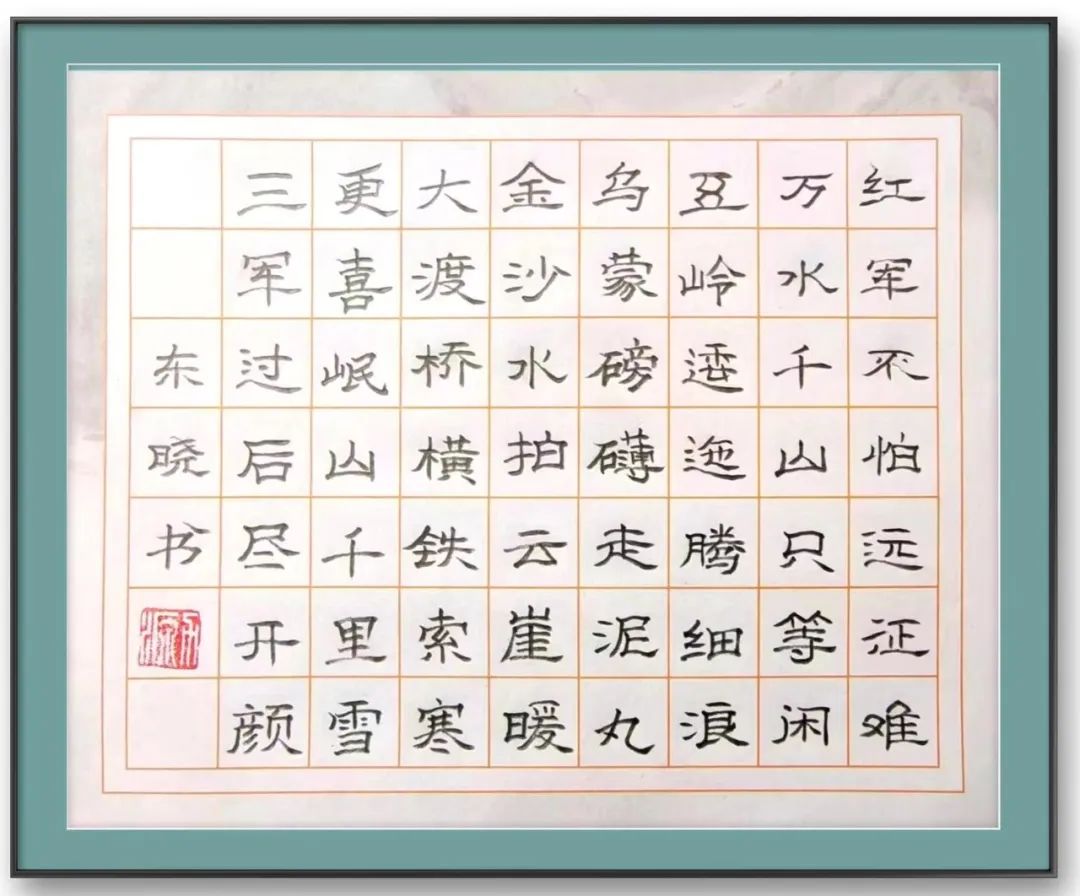 红军不怕远征难
万水千山只等闲
五岭逶迤腾细浪
乌蒙磅礴走泥丸
金沙水拍云崖暖
大渡桥横铁索寒
更喜岷山千里雪
三军过后尽开颜
东晓书